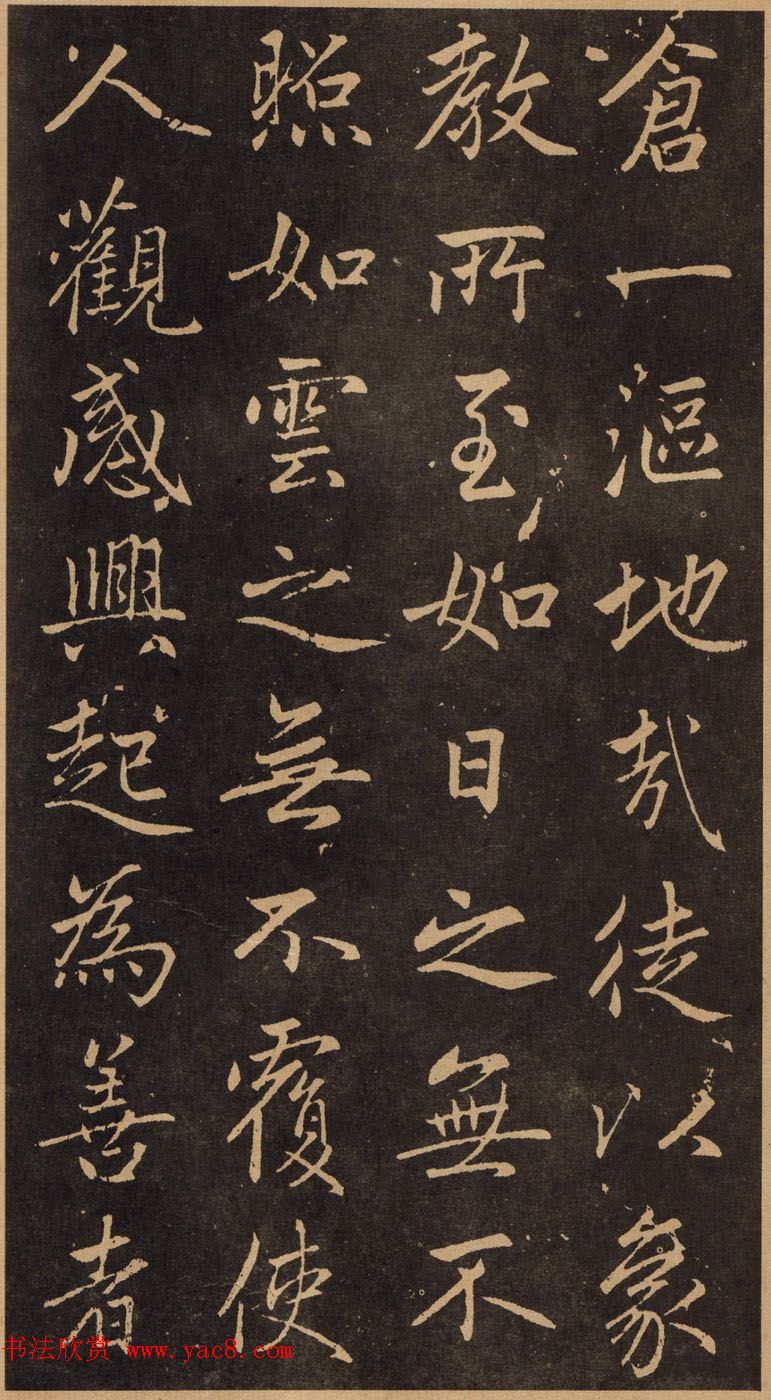 滄一漚地㢤徒以象
教所至如日之無不
照如雲之無不覆使
人觀感興起為善者
书法欣赏 www.yac8.com